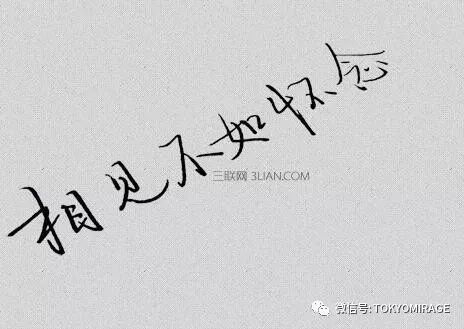 相见不如怀念
三联网 3LIAN.COM
微信号: TOKYOMIRAGE